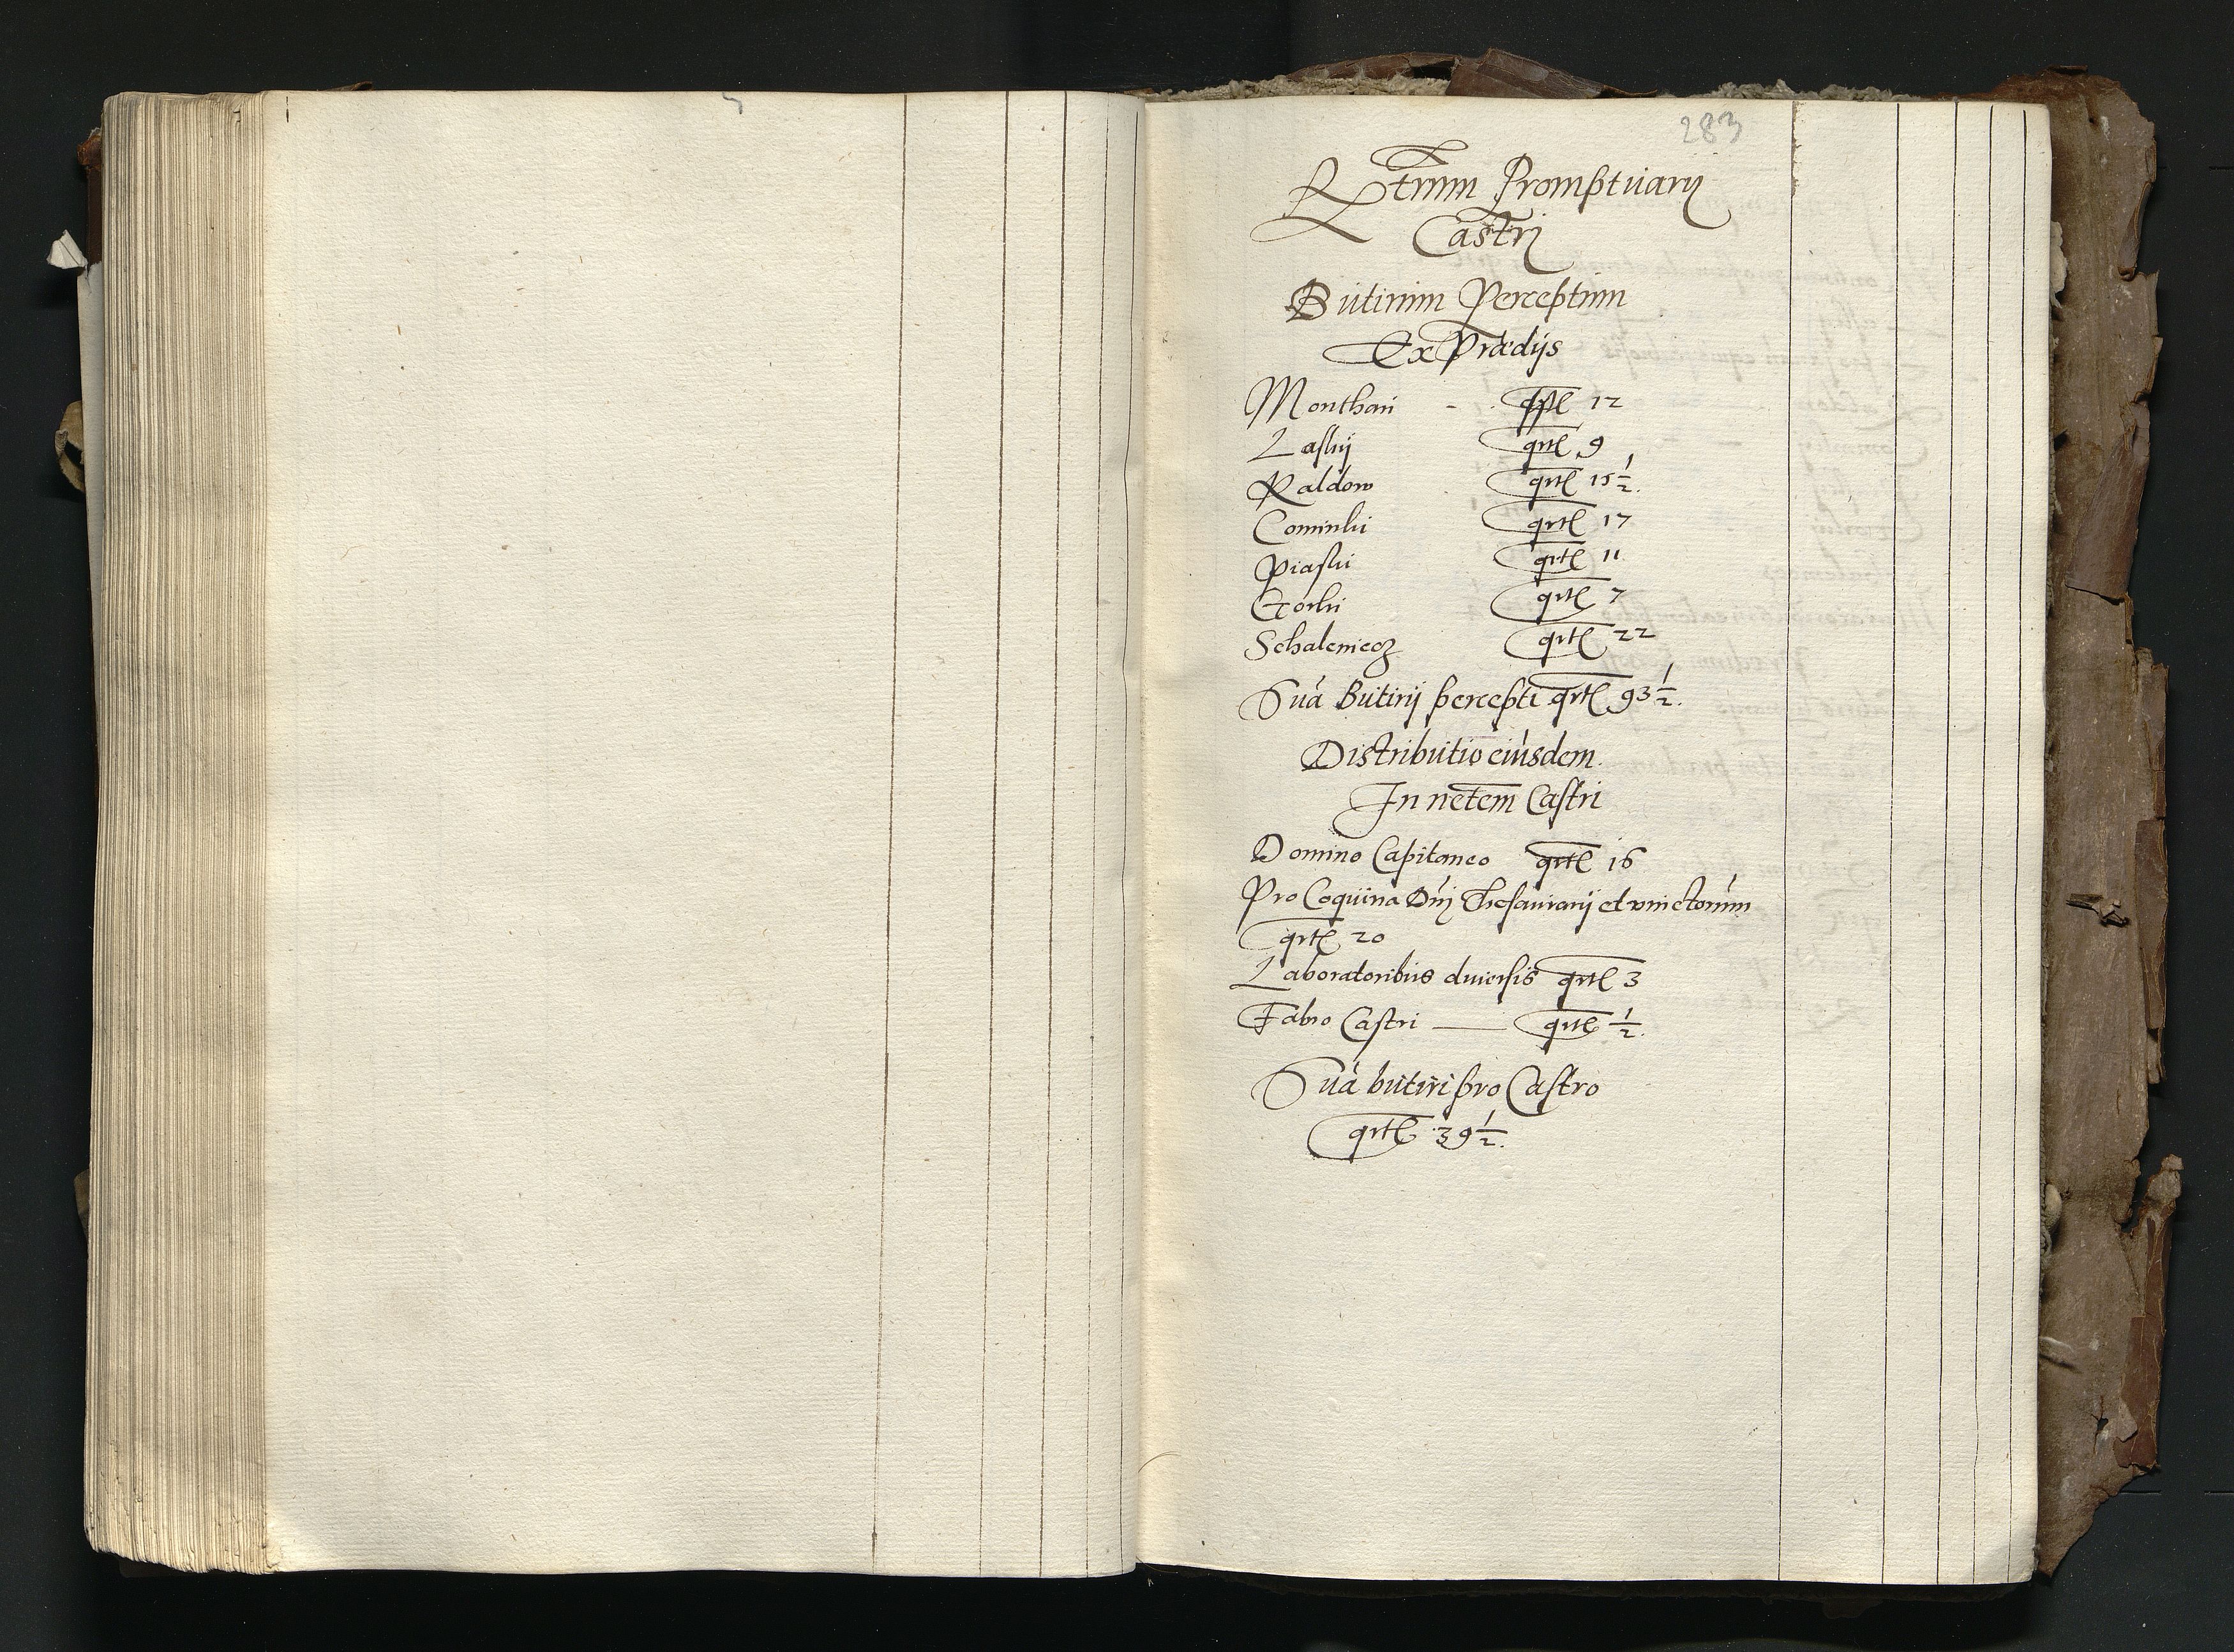 283
Rtrum Promptuarij
Castri
Butirum Perceptum
Ex Prædijs
Monthaui - . qrtl 12
Laskij qrtl 9
Kaldow qrtl 15 1/2.
Cominki qrtl 17
Piaski qrtl 11
Gorki qrtl 7
Schaleniecz qrtl 22
Suã Butirij percepti qrtl 93 1/2.
Distributio eiusdem.
In netem Castri
Domino Capitaneo qrtl 16
Pro Coquina Dnj Thesaurarij et vinctorum
qrtl 20
Laboratoribus diuersis qrtl 3
Fabro Castri — qrtl 1/2.
Suã butiri pro Castro
qrtl 39 1/2.